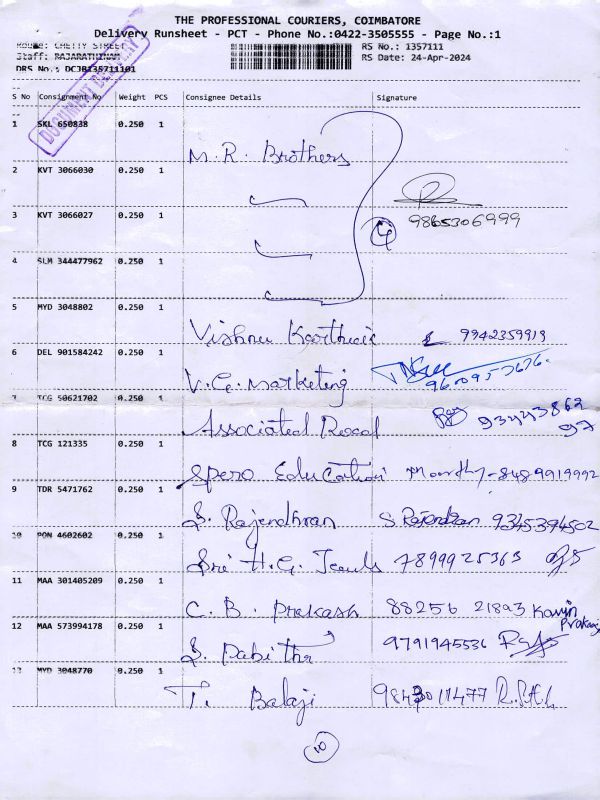 THE PROFESSIONAL COURIERS, COIMBATORE
Delivery Runsheet - PCT - Phone No.:0422-3505555 - Page No.:1
Route: CHETTY STREET
RS No.: 1357111
Staff: RAJARATHINAM
RS Date: 24-Apr-2024
DRS No.: DCJB135711101
DOCUMENT DELIVERY
S No Consignment No Weight PCS Consignee Details Signature
1 SKL 650838 0.250 1
M. R. Brothers
2 KVT 3066030 0.250 1
3 KVT 3066027 0.250 1
9865306999
4
4 SLM 344477962 0.250 1
5 MYD 3048802 0.250 1
Vishnu 9942359919
6 DEL 901584242 0.250 1
V.G. Marketing
7 TCG 50621702 0.250 1
Associated 93443862
97
8 TCG 121335 0.250 1
Spero Education 8489919992
9 TDR 5471762 0.250 1
S. Rajendhran S. Rajendran 9345394502
10 PON 4602602 0.250 1
Sri H.G. 7899925363
11 MAA 301405209 0.250 1
C. B. Prakash 88256 21893 Kavin
Prakash
12 MAA 573994178 0.250 1
S. Pabithr 9791945536
13 MYD 3048770 0.250 1
T. Balaji
10